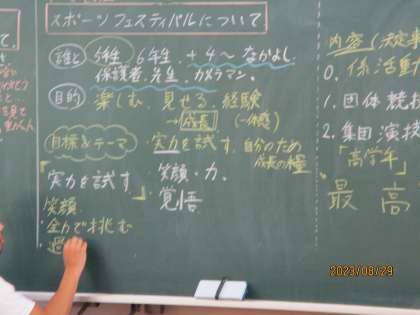 スポーツフェスティバルについて
誰と 5年生 6年生 + 4～ なかよし
保護者.先生.カメラマン.
目的 楽しむ.見せる.経験
→成長 (一体感)
目標&テーマ 実力を試す.自分のため
成長の糧
「実力を試す」
笑顔・力.
覚悟
笑顔
全力で挑む
過
内容(決定事
0. 係活動
1. 団体競技
2. 集団演技
「高学年」
最高
2023/08/29